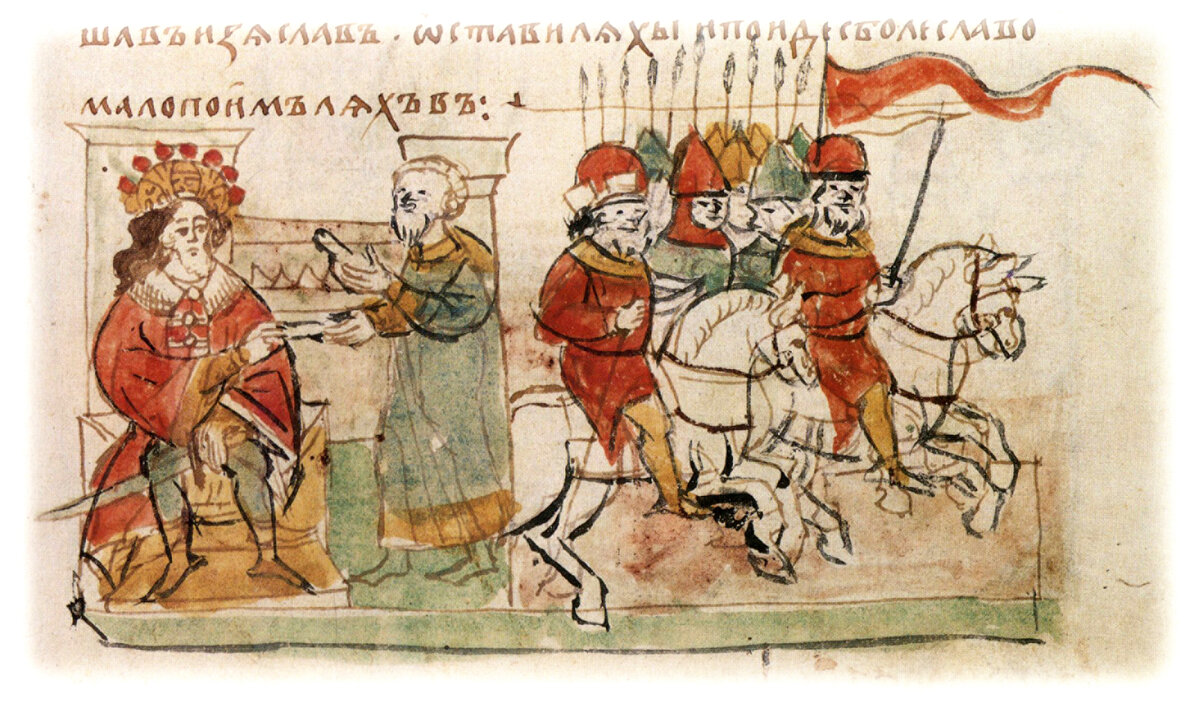 шавъ изѧславъ · ѡстави лѧхы и поиде с болеславо
мало поимъ лѧхъ въ: